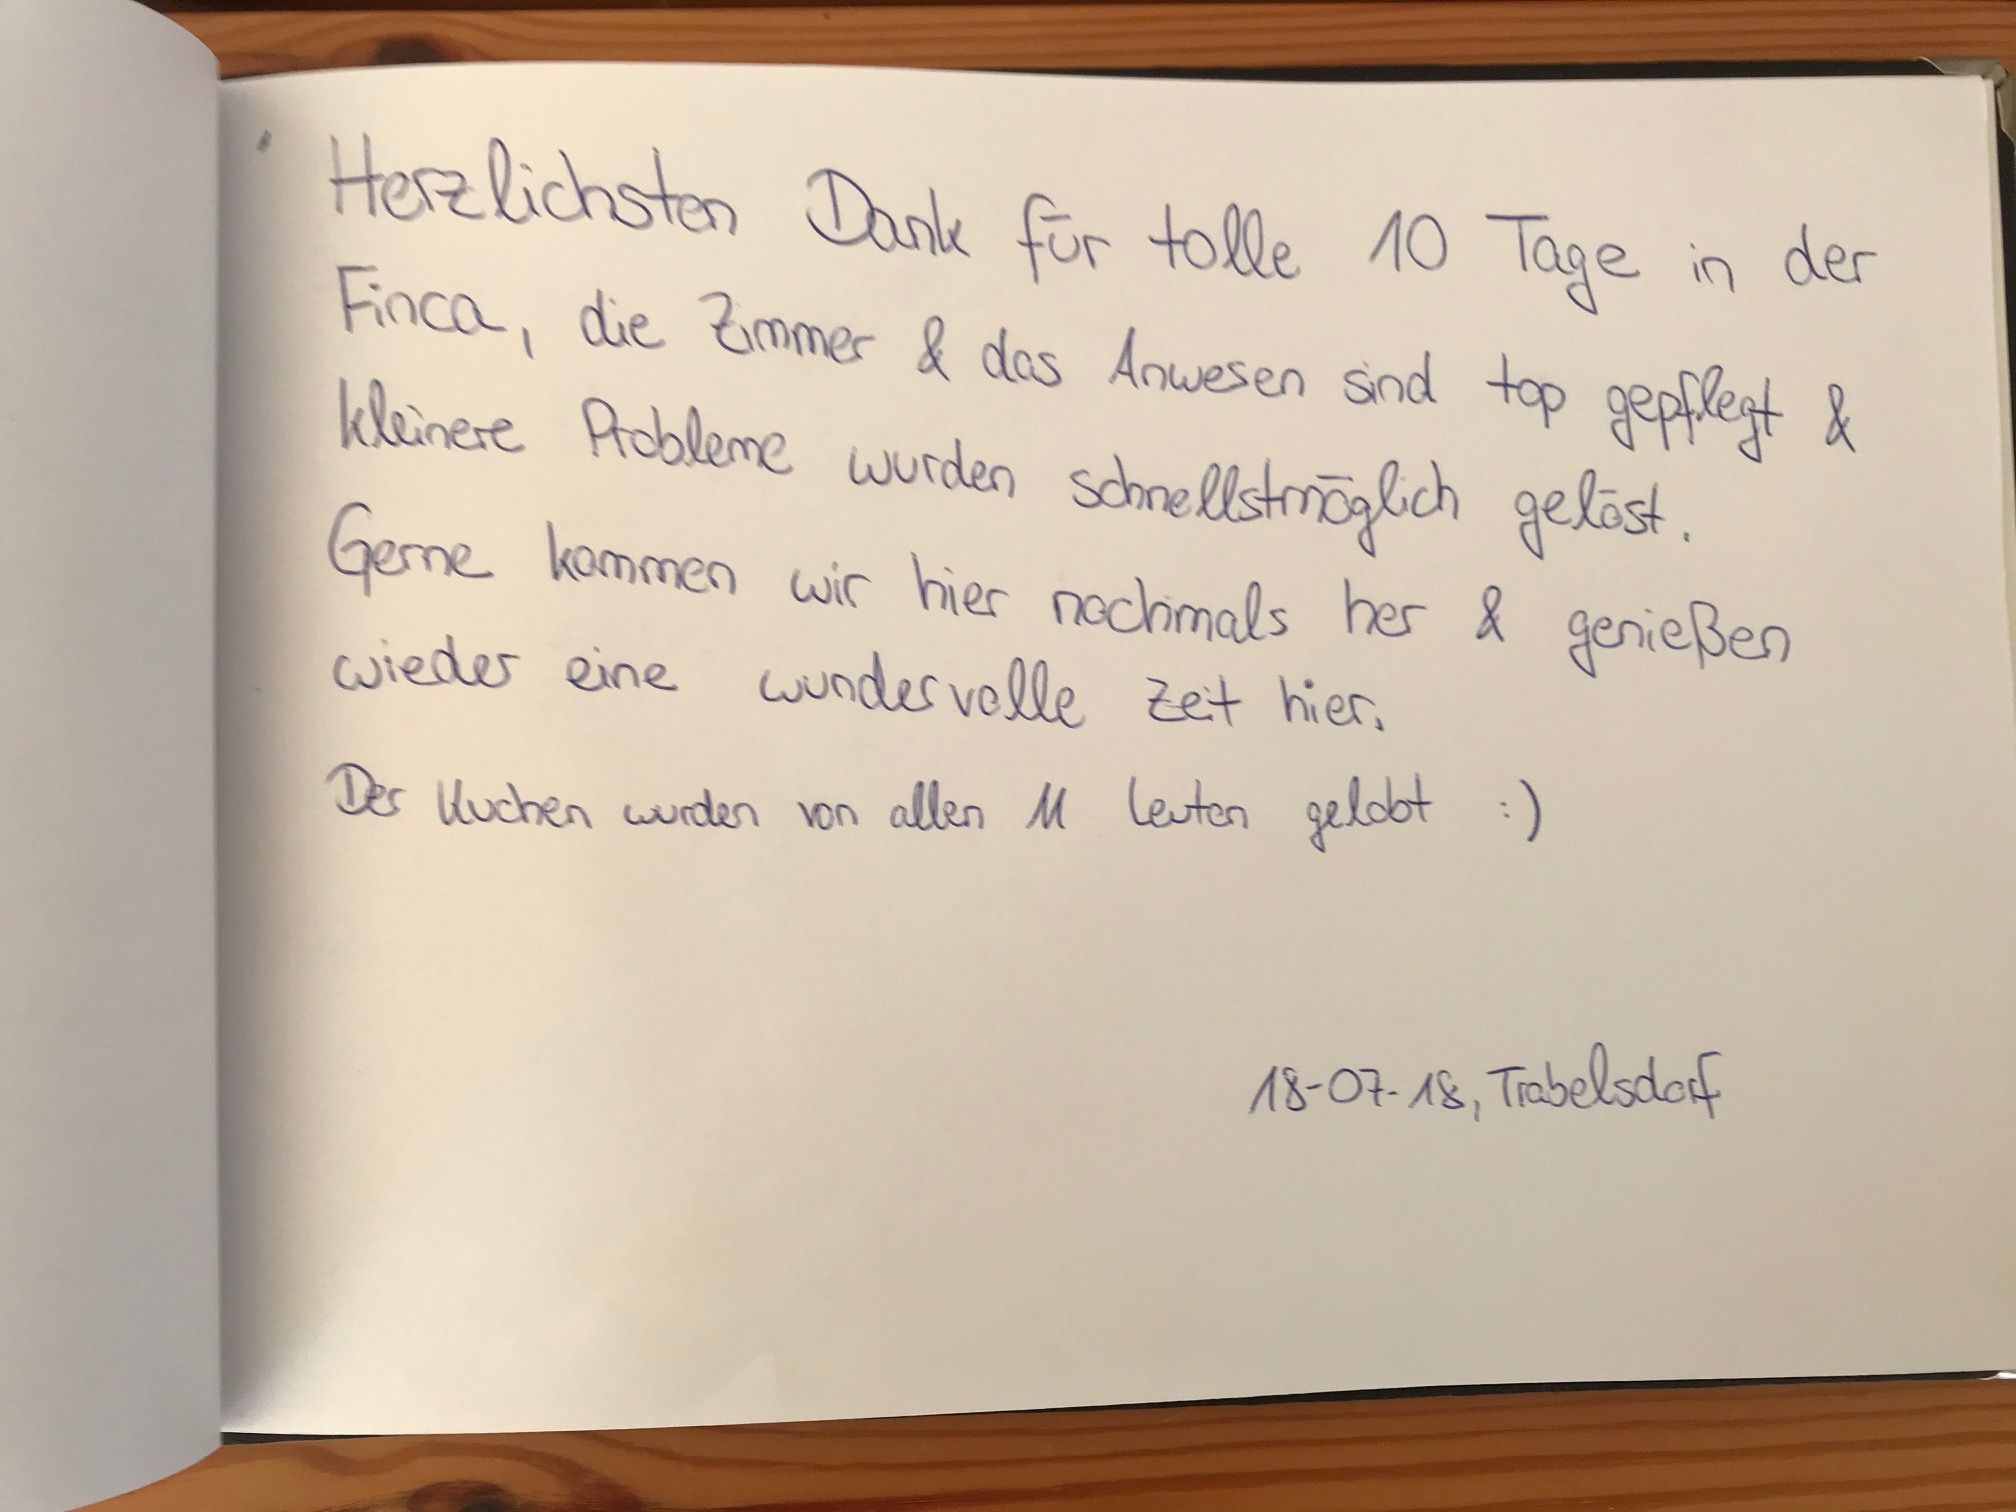 Herzlichsten Dank für tolle 10 Tage in der
Finca, die Zimmer & das Anwesen sind top gepflegt &
kleinere Probleme wurden schnellstmöglich gelöst.
Gerne kommen wir hier nochmals her & genießen
wieder eine wundervolle Zeit hier.
Der Kuchen wurden von allen 11 Leuten gelobt :)
18-07-18, Trabelsdorf